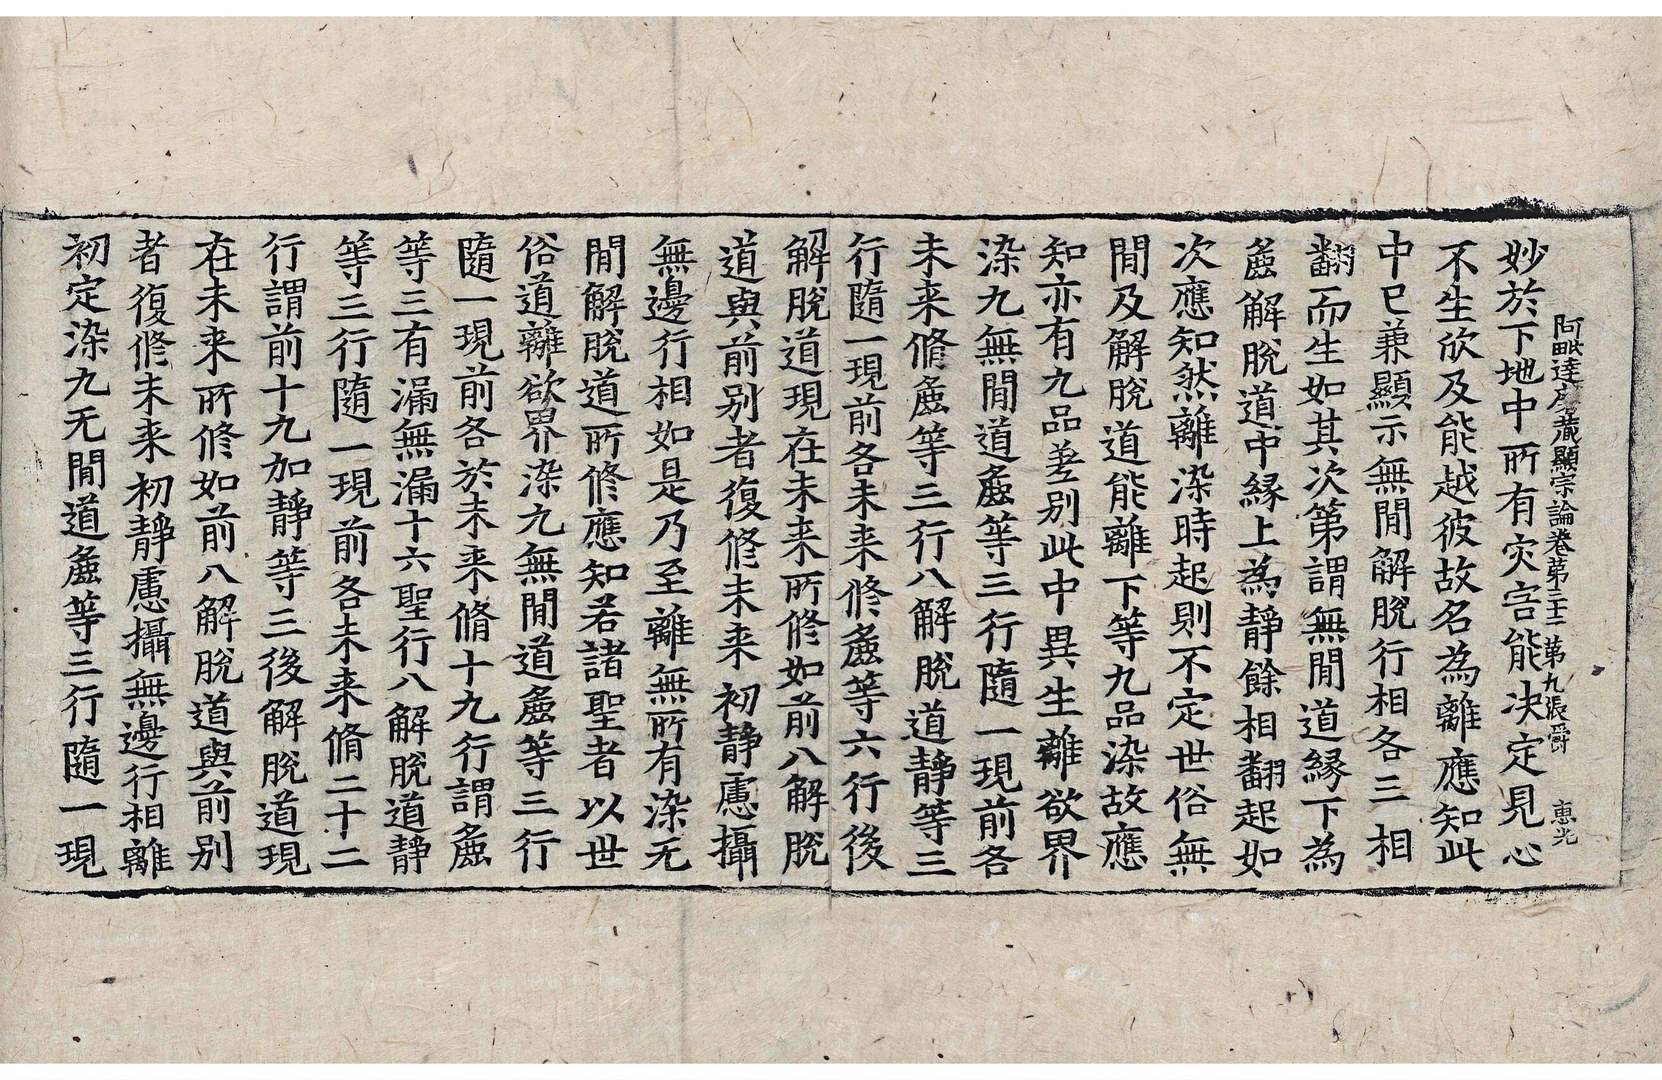 阿毗達磨藏顯宗論卷第三十二　第九張　爵　惠光
妙於下地中所有灾害能决定見心
不生欣及能越彼故名為離應知此
中已兼顯示無間解脫行相各三相
翻而生如其次第謂無間道緣下為
麁解脫道中緣上為靜餘相翻起如
次應知然離染時起則不定世俗無
間及解脫道能離下等九品染故應
知亦有九品差别此中異生離欲界
染九無間道麁等三行隨一現前各
未来脩麁等三行八解脫道靜等三
行隨一現前各未来修麁等六行後
解脫道現在未来所修如前八解脫
道與前别者復修未来初靜慮攝
無邊行相如是乃至離無所有染无
間解脫道所修應知若諸聖者以世
俗道離欲界染九無間道麁等三行
隨一現前各於未来脩十九行謂麁
等三有漏無漏十六聖行八解脫道靜
等三行隨一現前各未来脩二十二
行謂前十九加靜等三後解脫道現
在未来所修如前八解脫道與前别
者復修未来初靜慮攝無邊行相離
初定染九无間道麁等三行隨一現